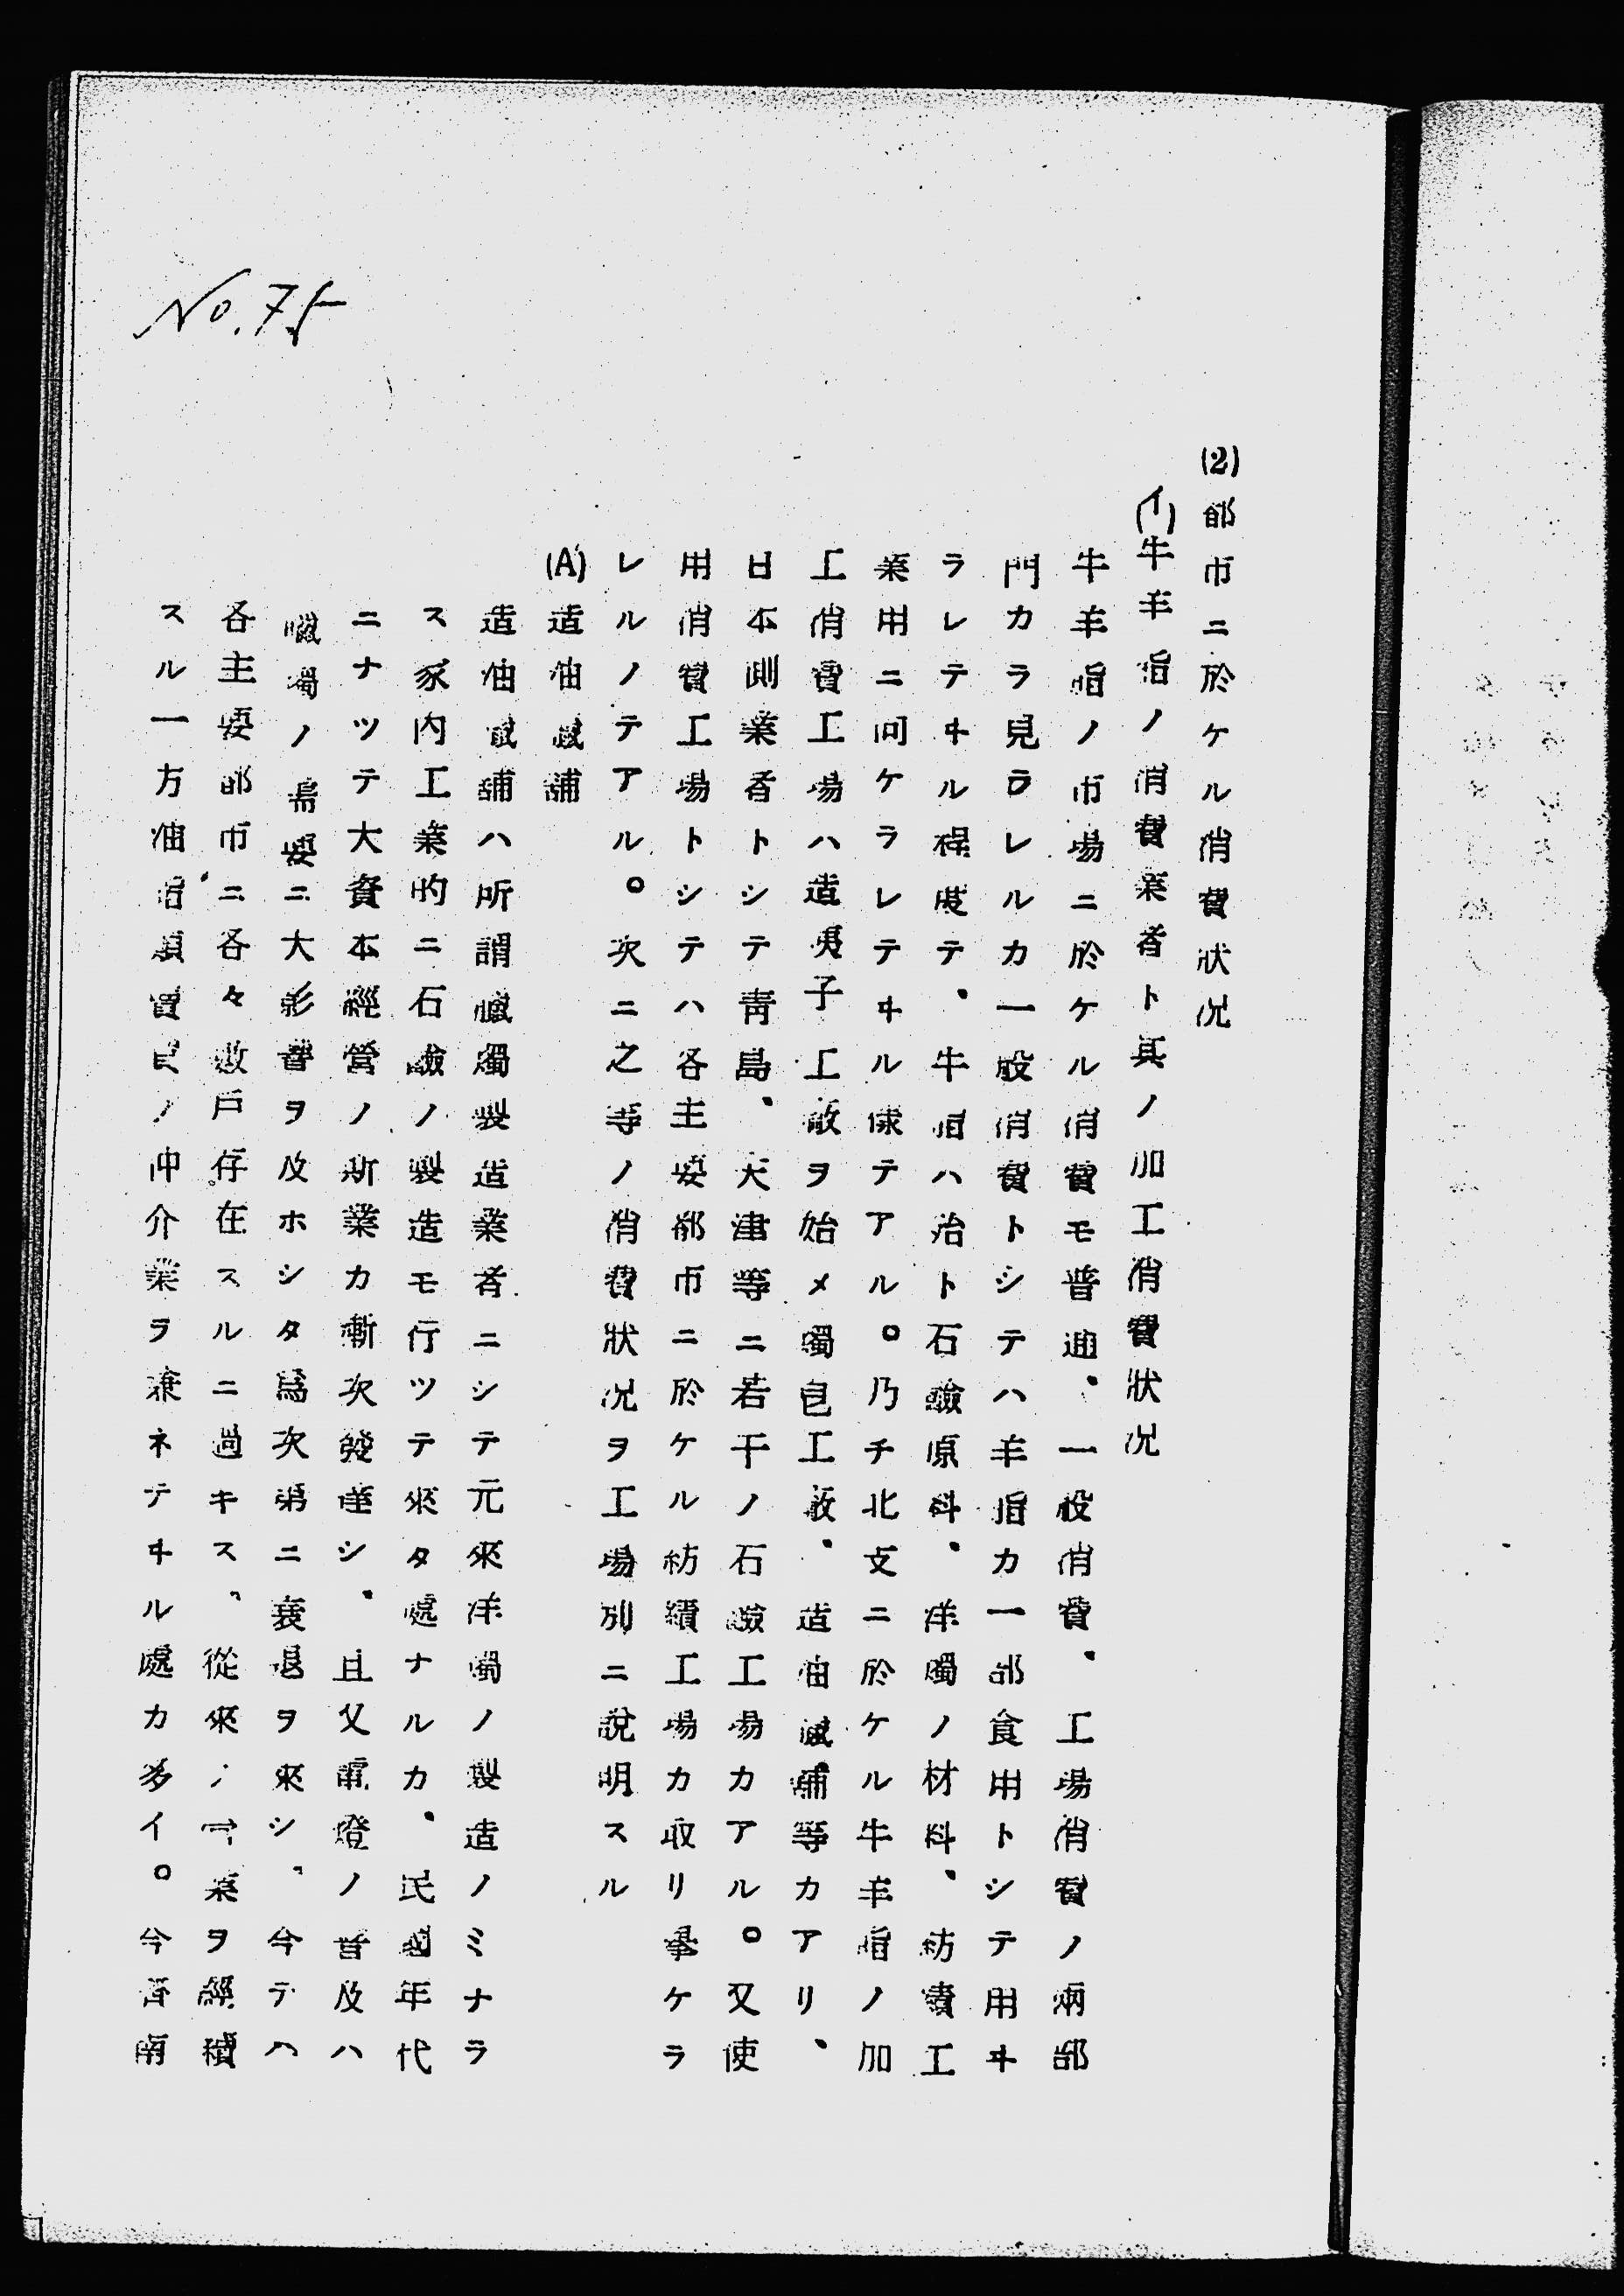 (2)都市ニ於ケル消費狀況
(イ)牛羊脂ノ消費業者ト其ノ加工消費狀況
牛羊脂ノ市場ニ於ケル消費モ普通、一般消費、工場消費ノ兩部
門カラ見ラレルカ一般消費トシテハ羊脂カ一部食用トシテ用ヰ
ラレテヰル程度テ、牛脂ハ治ト石鹼原料、洋燭ノ材料、紡績工
業用ニ向ケラレテヰル樣テアル。乃チ北支ニ於ケル牛羊脂ノ加
工消費工場ハ造胰子工廠ヲ始メ燭皂工廠、造油蠟舖等カアリ、
日本側業者トシテ靑島、天津等ニ若干ノ石鹼工場カアル。又使
用消費工場トシテハ各主要都市ニ於ケル紡績工場カ取リ擧ケラ
レルノテアル。次ニ之等ノ消費狀況ヲ工場別ニ說明スル
(A)造油蠟舖
造油蠟舖ハ所謂蠟燭製造業者ニシテ元來洋燭ノ製造ノミナラ
ス家內工業的ニ石鹼ノ製造モ行ツテ來タ處ナルカ、民國年代
ニナツテ大資本經營ノ斯業カ漸次發達シ、且又電燈ノ普及ハ
蠟燭ノ需要ニ大影響ヲ及ホシタ爲次第ニ衰退ヲ來シ、今テハ
各主要都市ニ各々數戶存在スルニ過キス、從來ノ營業ヲ繼續
スル一方油脂類賣買ノ仲介業ヲ兼ネテヰル處カ多イ。今濟南
No.75